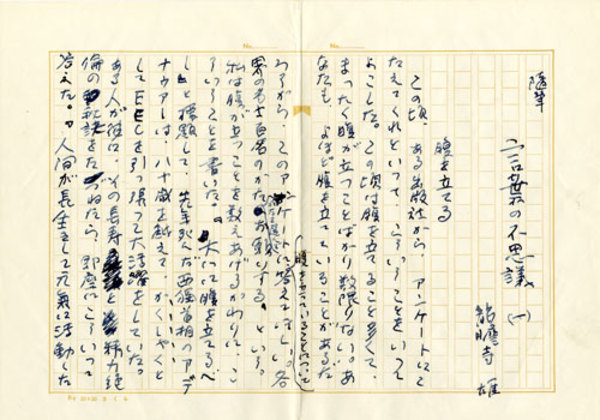 随筆
言葉の不思議(一)
龍膽寺 雄
腹を立てる
この頃、ある出版社から、アンケートにこ
たえてくれといって、こういうことをいって
よこした。この頃は腹を立てることが多くて、
まったく腹が立つことばかり数限りない。あ
なたも、よほど腹を立てていることがあるだ
ろうから、このアンケートに答えてほしい。各
腹を立てていることについて
界の名士百名のかたにお願いする、という。
私は腹が立つことを数えあげるかわりに、こ
ういうことを書いた。「大いに腹を立てるべ
し」と標題して、先年死んだ西独首相のアデ
ナウアーは、八十歳を越えて、かくしゃくと
してEECを引っ張って大活躍をしていた。
ある人が彼に、その長寿と精力絶
倫の秘訣をたづねたら、即座にこういって
答えた。「人間が長生きして元気に活動した
No.
No.